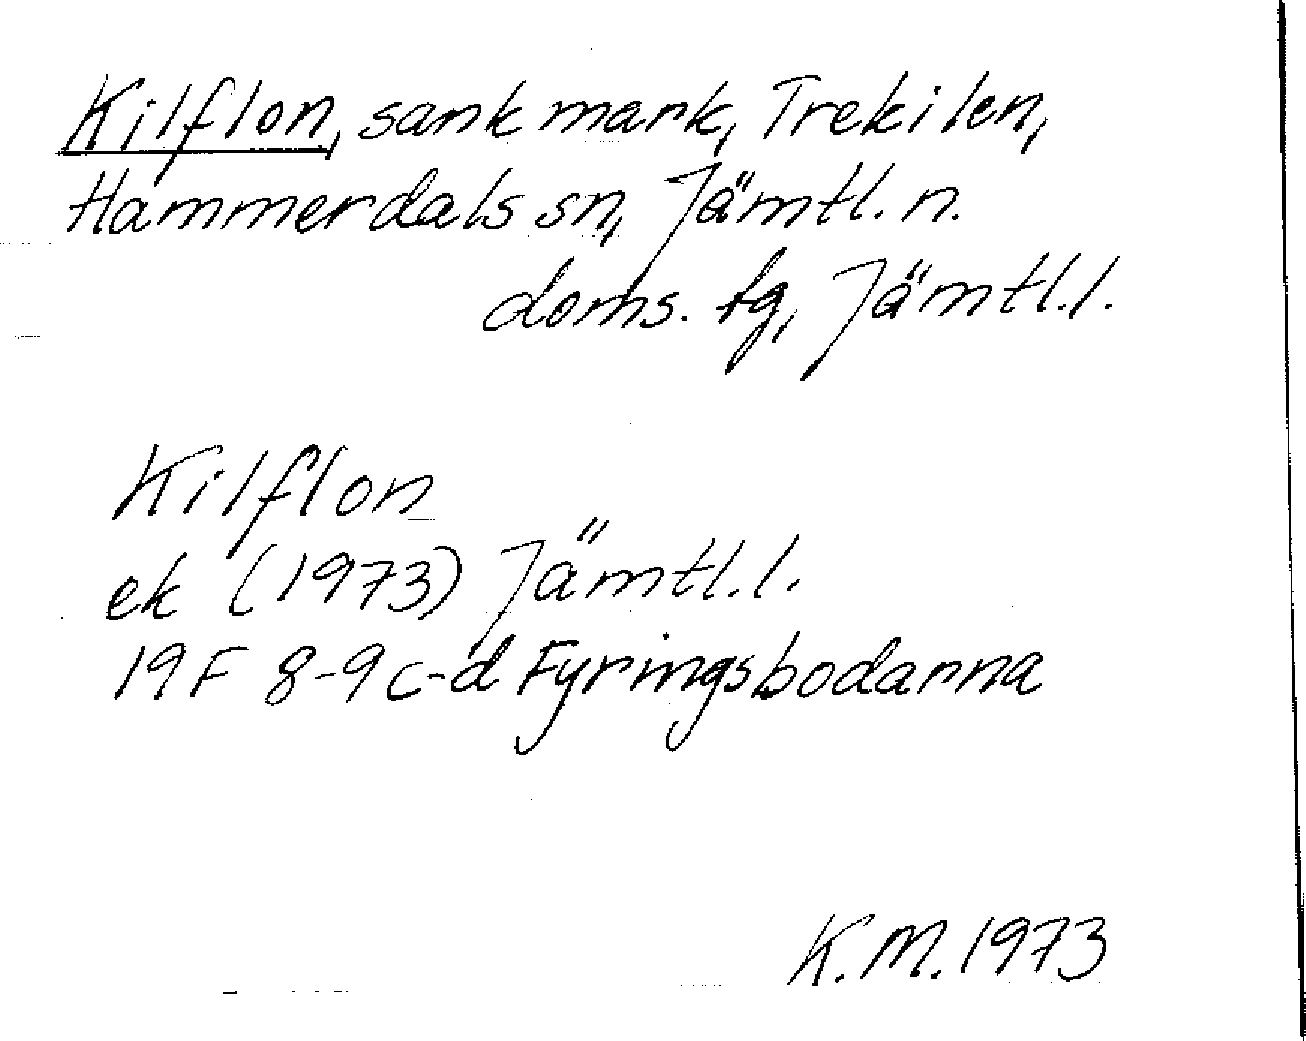 Kilflon, sank mark, Trekilen,
Hammerdals sn, Jämtl. n.
doms. tg, Jämtl.l.
Kilflon
ek (1973) Jämtl.l.
19F 8-9c-d Fyringsbodarna
K.M. 1973